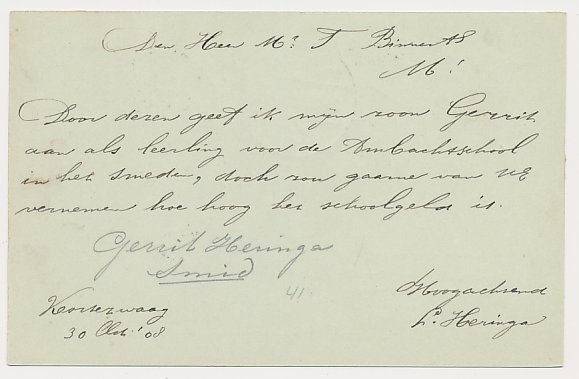 Den Heer Mr. F Binnerts
M!
Door dezen geef ik mijn zoon Gerrit
aan als leerling voor de Ambachtsschool
in het smeden, doch zou gaarne van UE
vernemen hoe hoog het schoolgeld is.
Gerrit Heringa
Smid
41
Hoogachtend
L. Heringa
Kortezwaag
30 Oct. '08